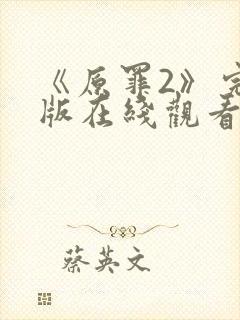 《原罪2》完
版在綫觀看
蔡英文